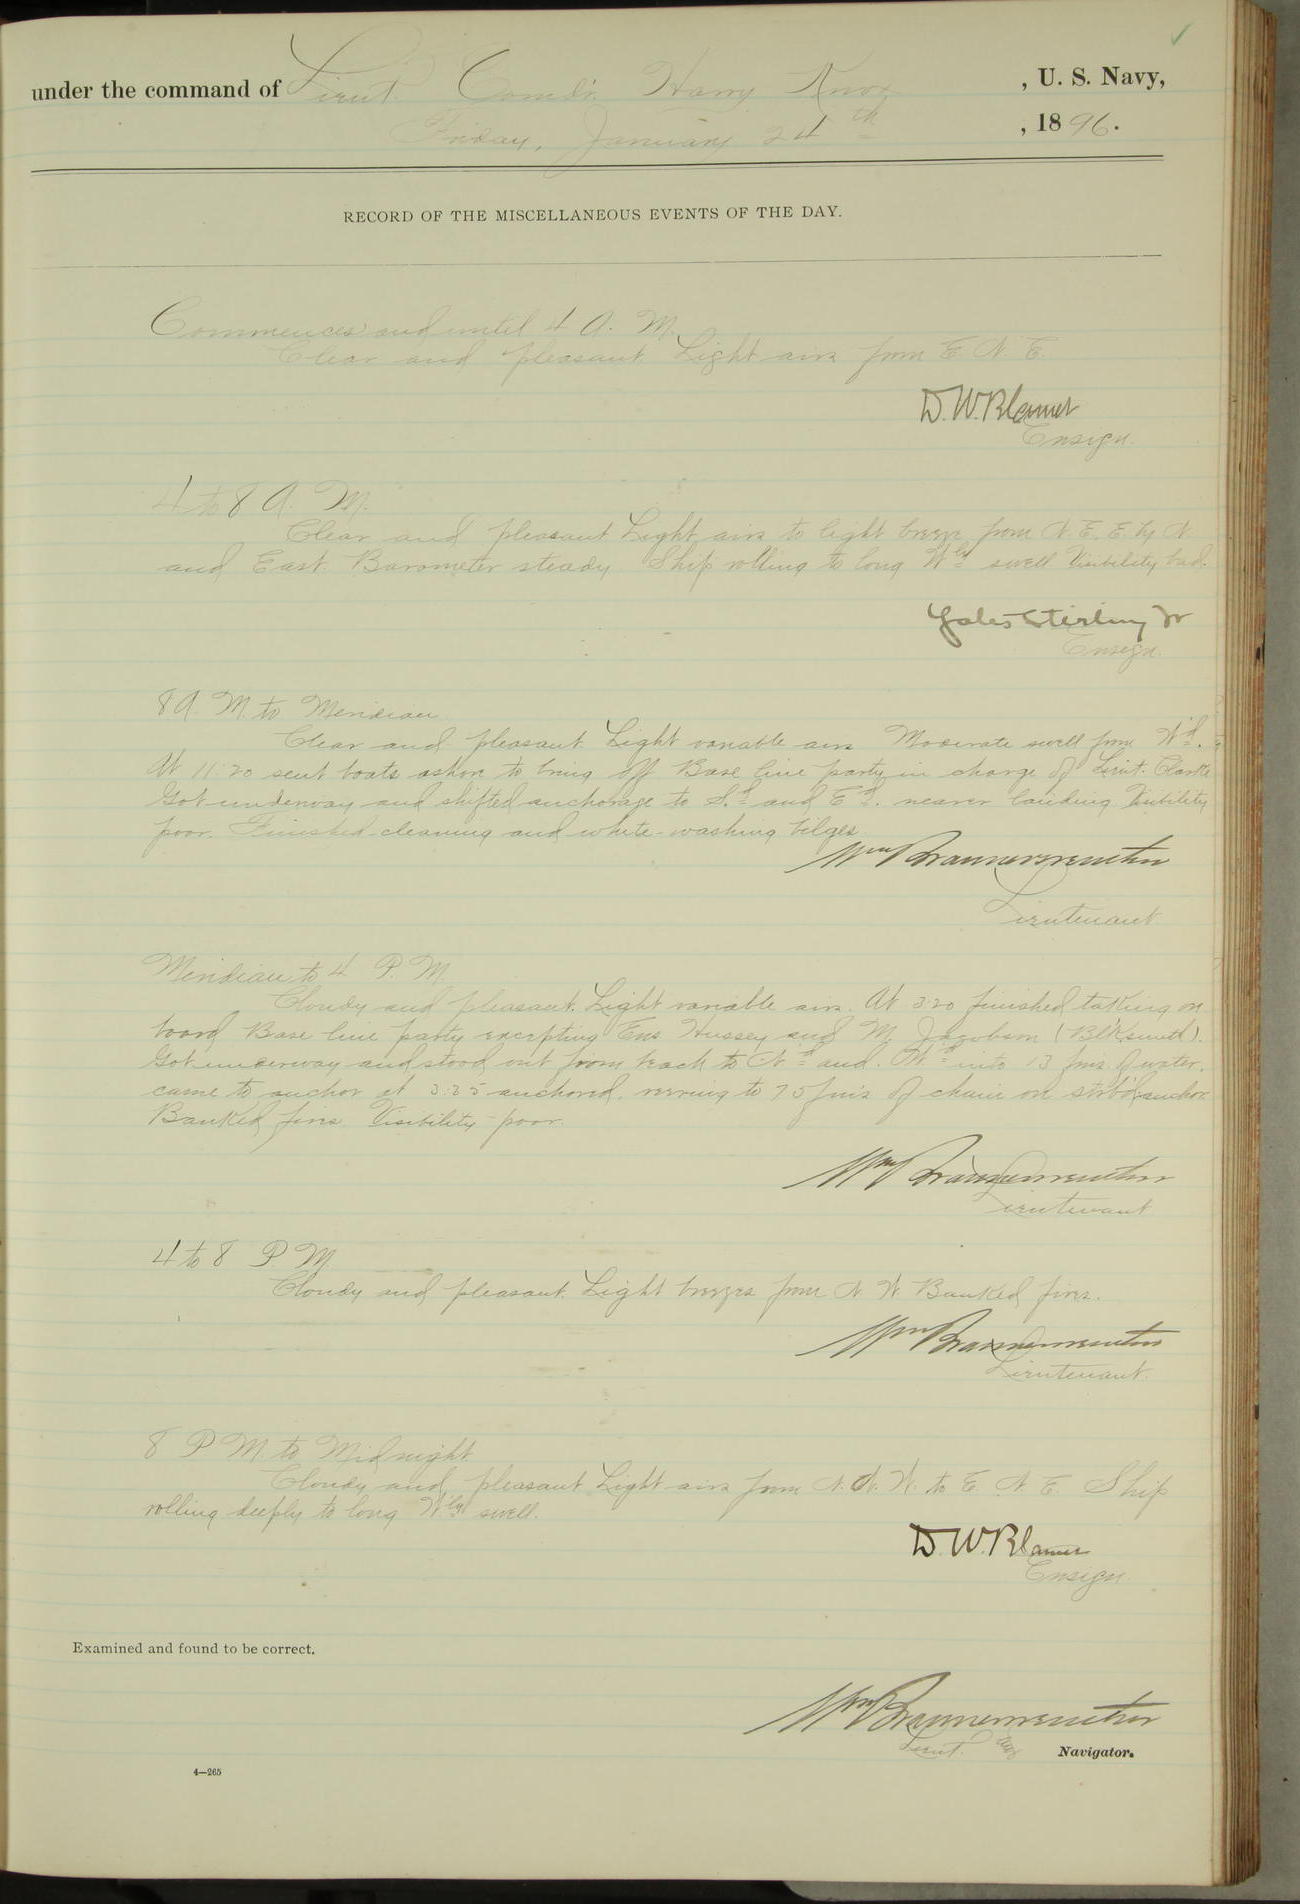 under the command of Lieut. Comdr. Harry Knox, U. S. Navy,
Friday, January 24th, 1896.
RECORD OF THE MISCELLANEOUS EVENTS OF THE DAY.
Commences and until 4 A. M.
Clear and pleasant. Light airs from E. N. E.
D. W. Blamer
Ensign.
4 to 8 A. M.
Clear and pleasant Light airs to light breeze from N. E. E. by N
and East. Barometer steady Ship rolling to long Wly swell Visibility bad.
Yates Stirling Jr
Ensign.
8 A. M. to Meridian
Clear and pleasant. Light variable airs Moderate swell from Wd.
At 11:20 sent boats ashore to bring off Base line party in charge of Lieut. Clarke
Got underway and shifted anchorage to Sd and Ed. nearer landing Visibility
poor. Finished cleaning and white-washing bilges
Wm Braunersreuther
Lieutenant
Meridian to 4 P. M.
Cloudy and pleasant. Light variable airs. At 3:20 finished taking on
board Base line party excepting Ens Hussey and M. Jacobson (Blksmith).
Got underway and stood out from beach to Nd and Wd into 13 fms. of water.
came to anchor at 3:35 anchored. veering to 75 fms of chain on stbd anchor
Banked fires Visibility poor.
Wm Braunersreuther
Lieutenant
4 to 8 P M
Cloudy and pleasant. Light breezes from N. W. Banked fires.
Wm Braunersreuther
Lieutenant.
8 P M. to Midnight
Cloudy and pleasant Light airs from N. N. W. to E. N. E. Ship
rolling deeply to long Wly swell.
D. W. Blamer
Ensign
Examined and found to be correct.
Wm Braunersreuther
Lieut. Navigator.
4—265